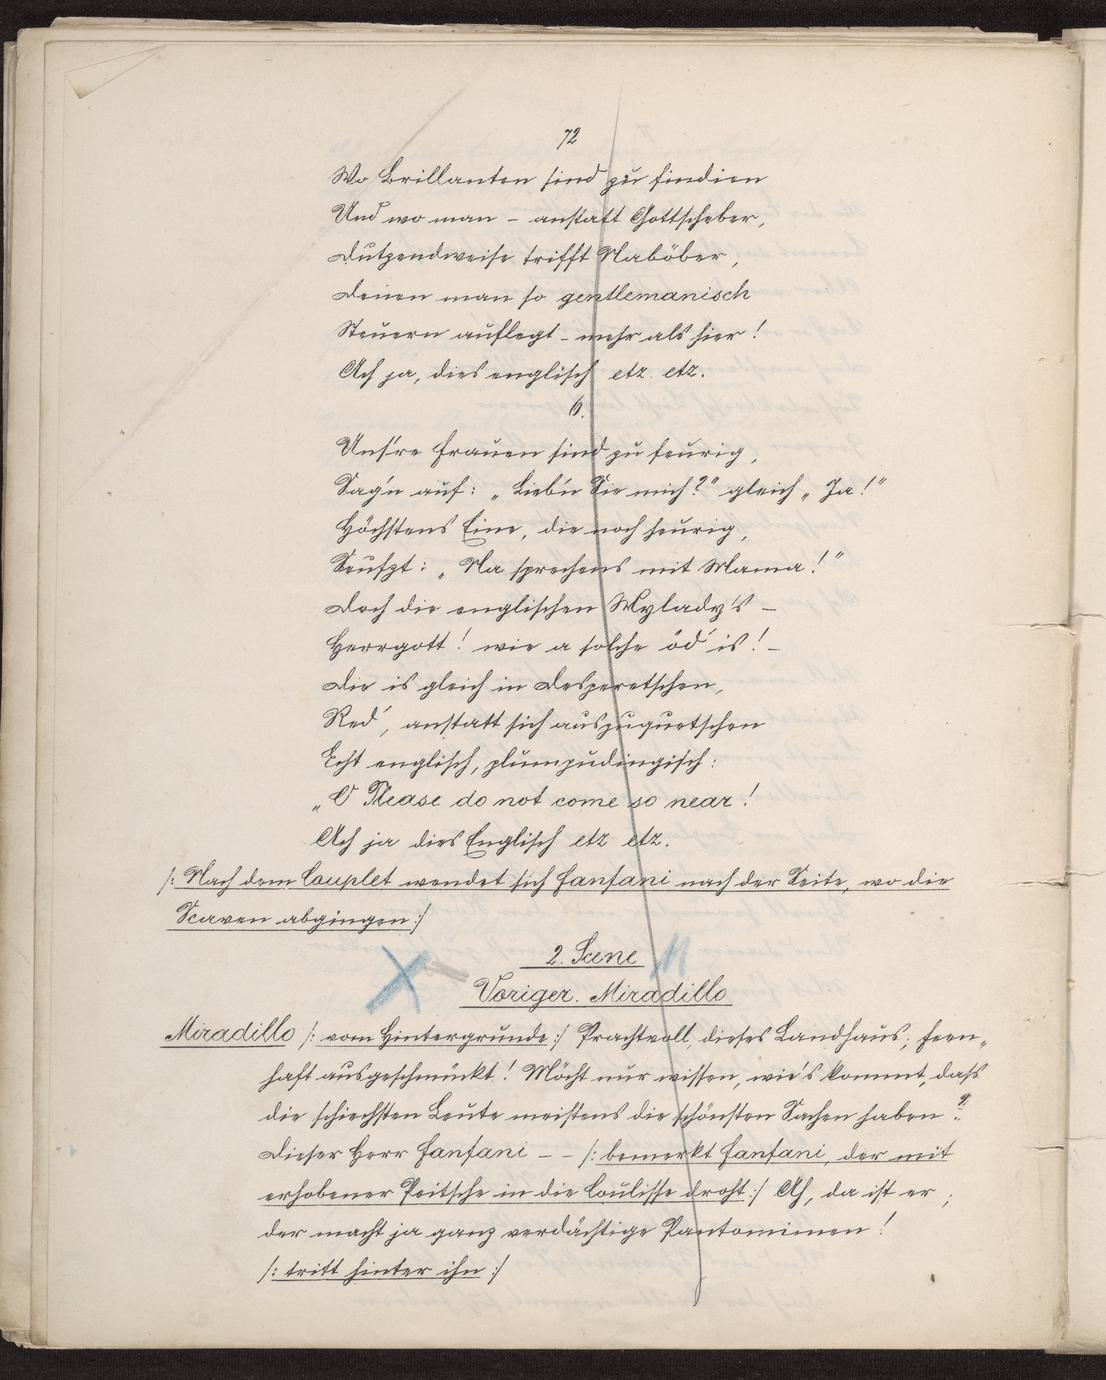 72
Wo Brillanten sind zu findien
Und wo man – anstatt Gottscheber,
Dutzendweise trifft Naböber,
Denen man so gentlemanisch
Steuern auflegt – mehr als hier!
Ach ja, dies englisch etz. etz.
6.
Uns're Frauen sind zu feurig,
Sag'n auf: „Lieb'n Sie mich?" gleich „Ja!"
Höchstens Eine, die noch heurig,
Seufzt: „Na sprechens mit Mama!"
Doch die englischen Mylady's –
Herrgott! wie a solche öd' is! –
Die is gleich in Desperetschen,
Red', anstatt sich auszuquetschen
Echt englisch, plumpudingisch:
„O Please do not come so near!
Ach ja dies Englisch etz etz.
/: Nach dem Couplet wendet sich Fanfani nach der Seite, wo die
Scaven abgingen :/
2. Scene
Voriger. Miradillo
Miradillo /: vom Hintergrunde :/ Prachtvoll, dieses Landhaus; feen-
haft ausgeschmückt! Möcht nur wissen, wie's kommt, daß
die schiechsten Leute meistens die schönsten Sachen haben?
Dieser Herr Fanfani – – /: bemerkt Fanfani, der mit
erhobener Peitsche in die Coulisse droht :/ Ah, da ist er;
der macht ja ganz verdächtige Pantomimen!
/: tritt hinter ihn :/